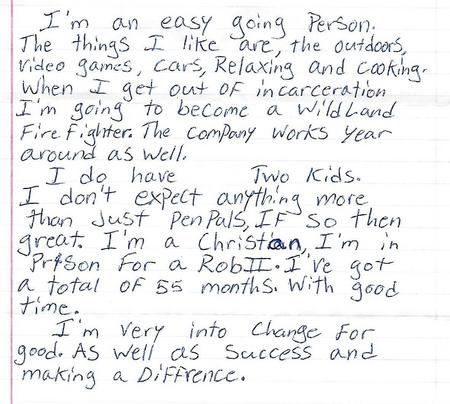 I'm an easy going Person.
The things I like are, the outdoors,
video games, cars, Relaxing and cooking.
When I get out of incarceration
I'm going to become a WildLand
FireFighter. The company works year
around as well.
I do have Two Kids.
I don't expect anything more
than Just PenPals, IF so then
great. I'm a Christian, I'm in
Prison For a RobII. I've got
a total of 55 months. With good
time.
I'm very into Change For
good. As well as Success and
making a Diffrence.